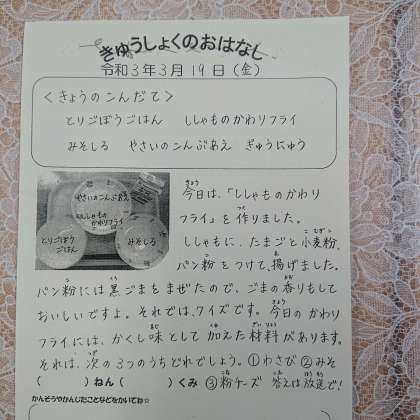 きゅうしょくのおはなし
令和3年3月19日(金)
<きょうのこんだて>
とりごぼうごはん ししゃものかわりフライ
みそしる やさいのこんぶあえ ぎゅうにゅう
やさいのこんぶあえ
ししゃもの
かわりフライ
とりごぼう
ごはん
みそしる
今日は、「ししゃものかわり
フライ」を作りました。
ししゃもに、たまごと小麦粉、
パン粉をつけて、揚げました。
パン粉には黒ごまをまぜたので、ごまの香りもして
おいしいですよ。それでは、クイズです。今日のかわり
フライには、かくし味として加えた材料があります。
それは、次の3つのうちどれでしょう。①わさび ②みそ
( )ねん( )くみ ③粉チーズ 答えは放送で!
かんそうやかんしたことなどをかいてね☆